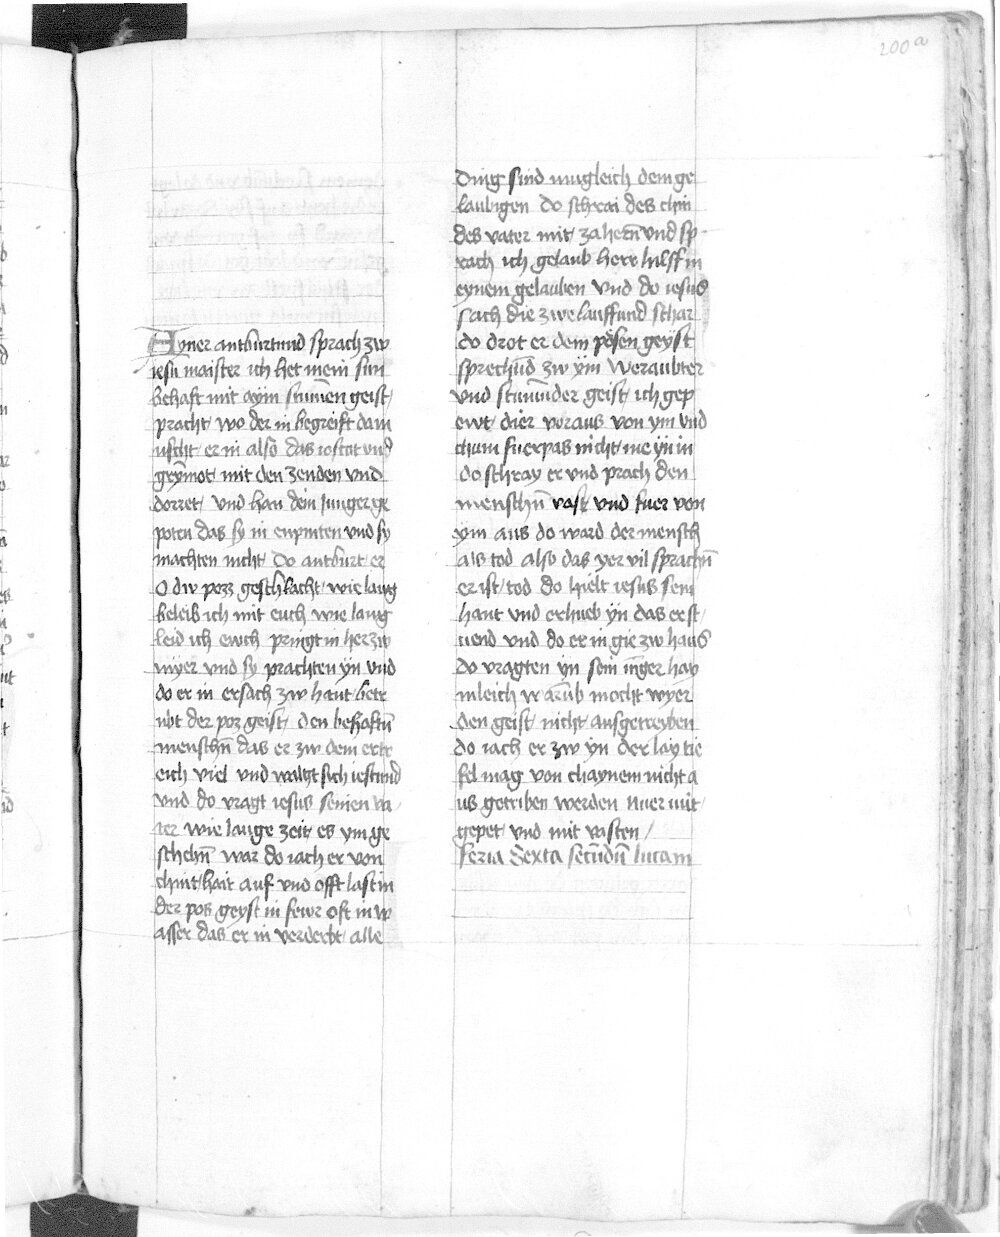 200a
Ayner antburtund sprach zw
iesu maister ich het mein sun
behaft mit aym stummen geist
pracht wo der in begreift dam
uscht er in also das iostot und
geymot mit den zenden vnd
dorret vnd han dein Junger ge
poten das sy in enpinten vnd sy
machten nicht Do antburt er
O dw poz geschlacht wie lang
beleib ich mit euch wie lang
leid ich ewch pringt in her zw
myer vnd sy prachten yn vnd
do er in ersach zw hant betr
ubt der poz geist den behaftn̄
menschn̄ das er zw dem ertr
eich viel vnd walgt sich
vnd do vragt iesus seinen va
ter wie lange zeit es ym ge
schehn̄ war do iach er von
chint hait auf vnd offt last in
der pos geyst in fewr oft in w
asser das er in verderbt alle
ding sind mugleich dem ge
laubigen do schrai des chin
des vater mit zahern vnd sp
rach ich gelaub herr hilff m
eynem gelauben vnd do iesus
sach die zwe lauffund schar
do drot er dem pösen geyst
sprechūd zw ym Weraubter
vnd stummder geist ich gep
ewt dier voraus von ym vnd
chum fuerpas nicht me yn in
do schray er vnd prach den
menschn̄ vast vnd fuer von
ym aus do ward der mensch
als tod also das yer vil sprachn̄
er ist tod do hielt iesus sein
hant vnd erhueb yn das er st
uend vnd do er in gie zw haus
do vragten yn sein iunger hay
mleich warūb mocht wyer
den geist nicht ausgetreyben
do iach er zw yn der lay tie
fel mag von chaynem nicht a
us getriben werden nuer mit
gepet vnd mit vasten
feria Sexta secūdū lucam